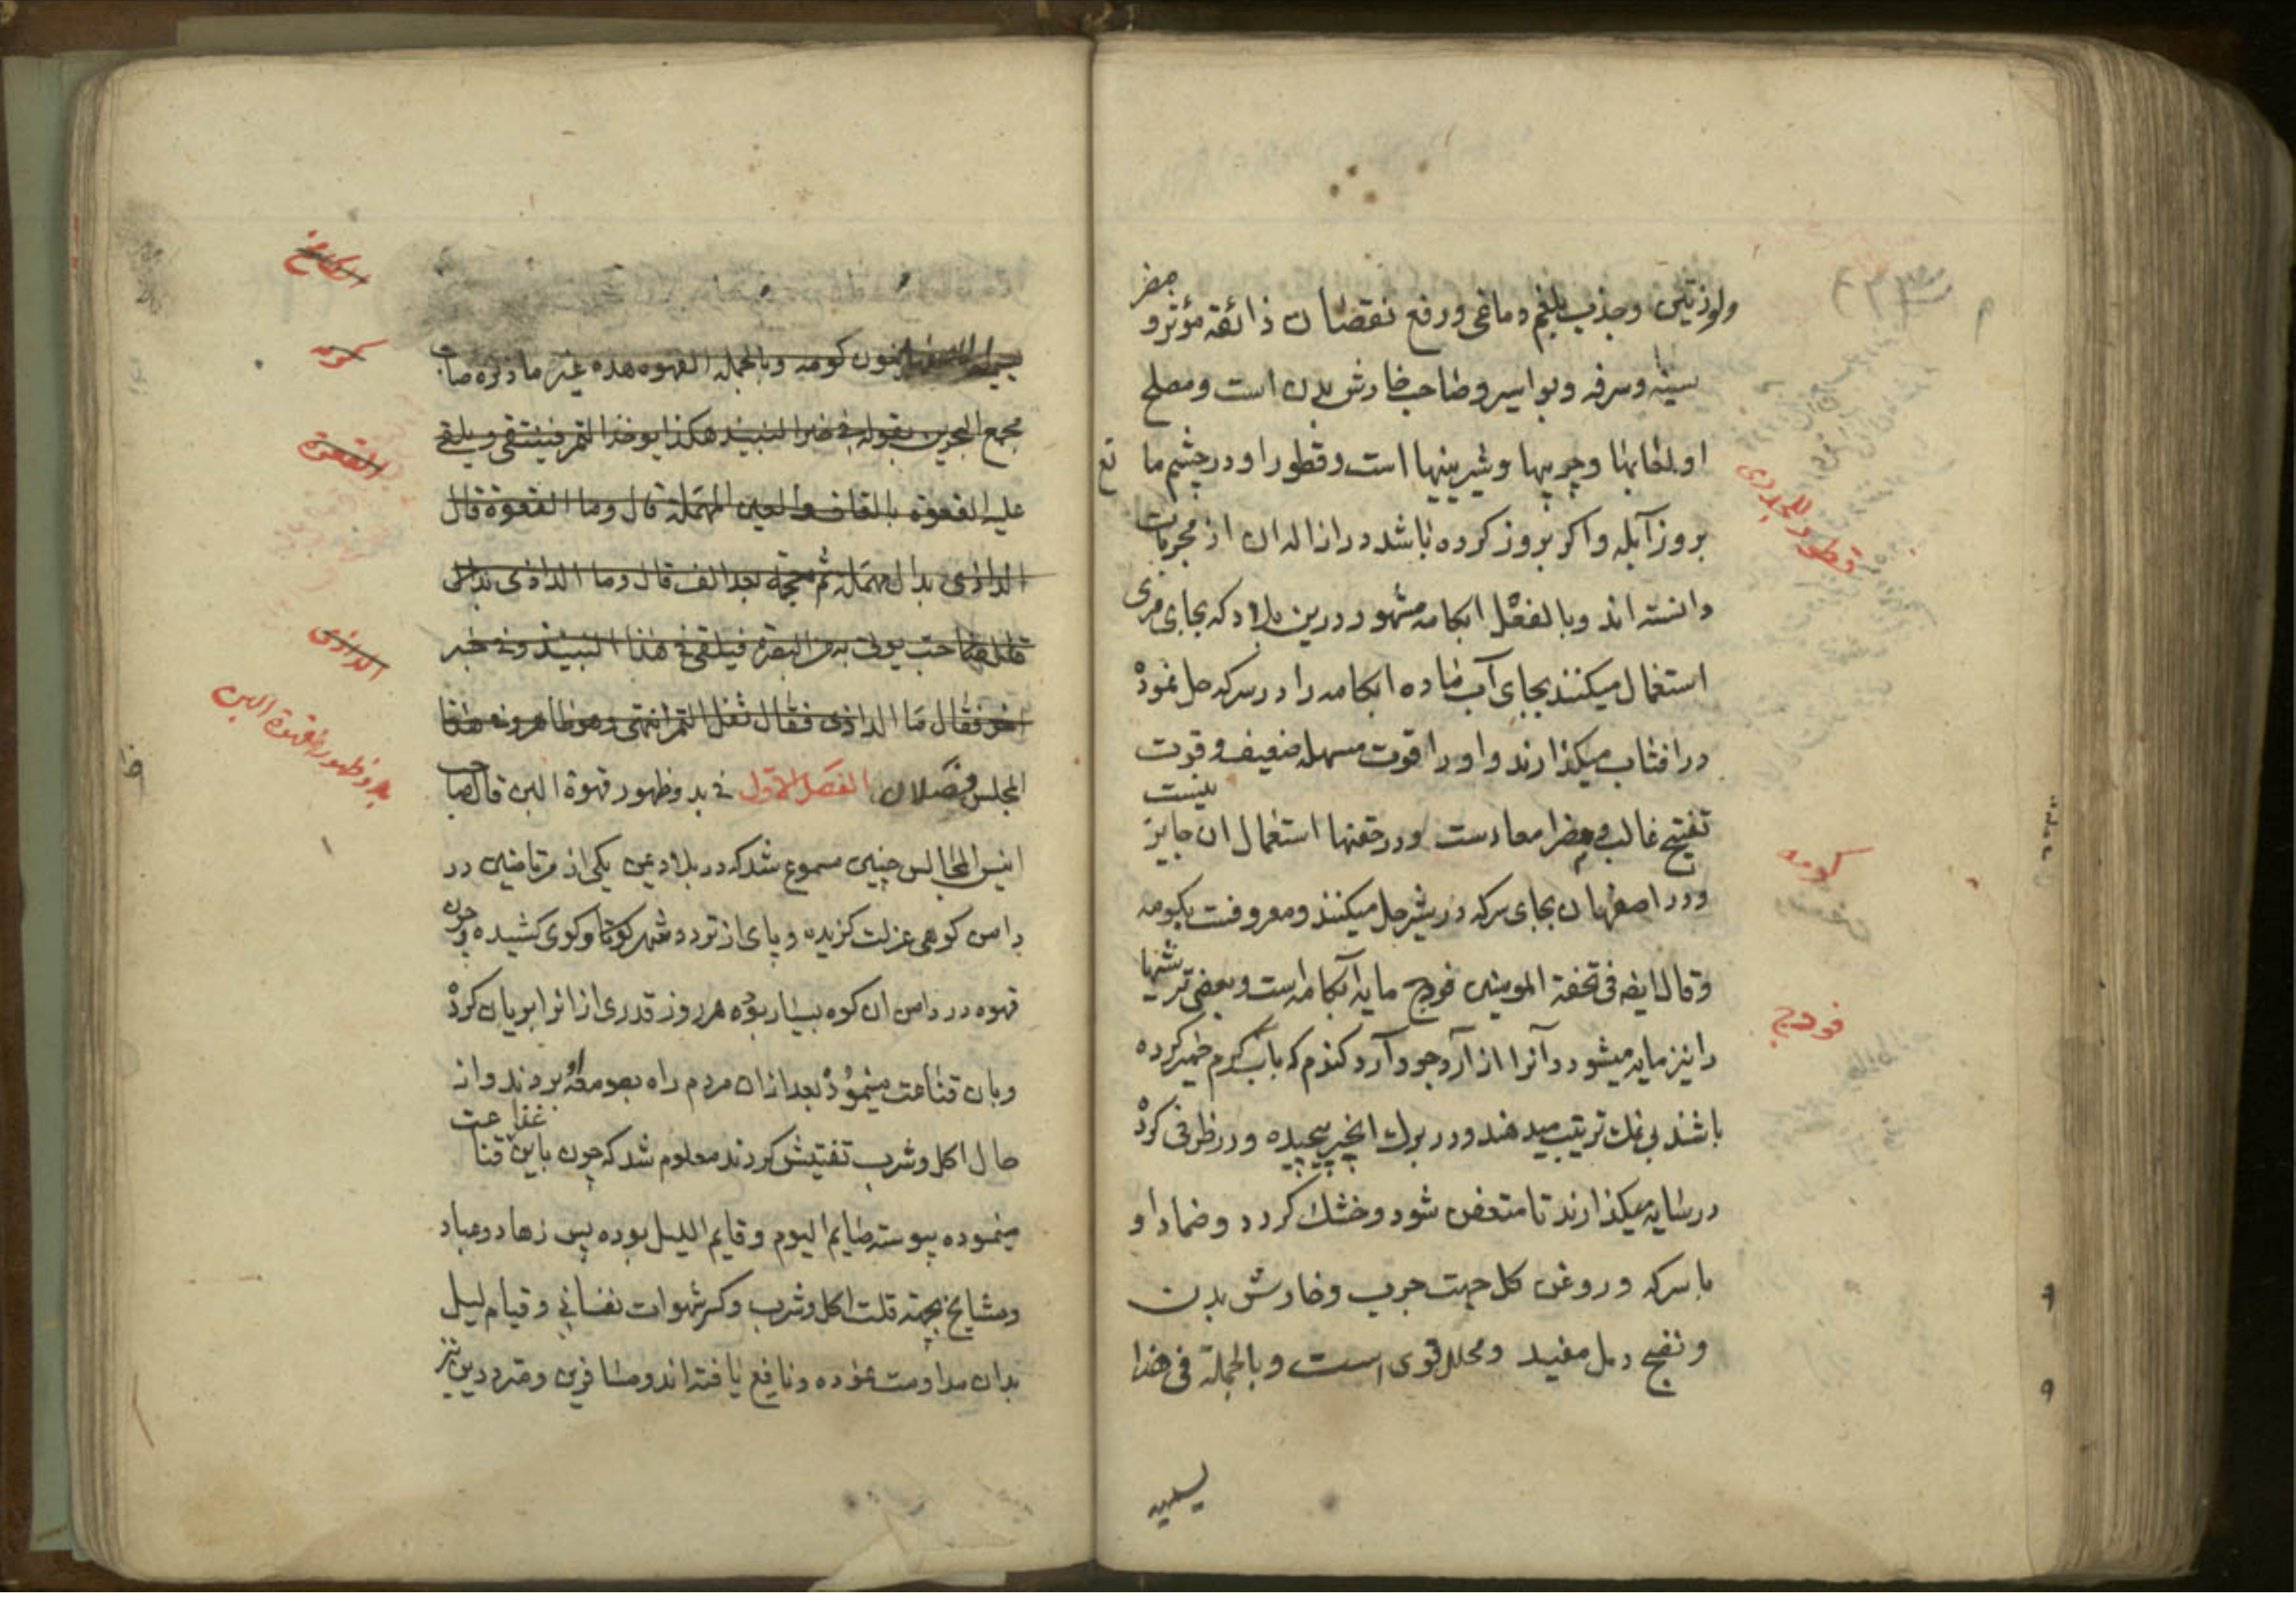 ولوزتین وجذب بلغم دماغی ورفع نقصان ذائقه مؤثر و مضر
سینه وسرفه وبواسیر وصاحب خارش بدن است ومصلح
او لعابها وچربیها وشیرینیها است وقطور او در چشم مانع
بروز آبله واکر بروز کرده باشد در ازاله ان از مجربات
دانسته اند وبالفعل ابکامه مشهور درین بلاد که بجای مری
استعمال میکنند بجای آب ساده ابکامه را در سرکه حل نموده
در افتاب میکذارند واو را قوت مسهله ضعیف وقوت
تفتیح غالب ومضر امعاء ست ودر حقنها استعمال ان جایز نیست
ودر اصفهان بجای سرکه در شیر حل میکنند ومعروفست بکومه
وقال ایضا فی تحفة المومنین فودج مایه آبکامه است وبعضی ترشیها
را نیز مایه میشود وآنرا از آرد جو وآرد کندم که باب کرم خمیر کرده
باشند بی نمک ترتیب میدهند ودر برک انجیر پیچیده ودر ظرفی کرده
در سایه میکذارند تا متعفن شود وخشک کردد وضماد او
با سرکه وروغن کل جهت جرب وخارش بدن
ونضج دمل مفید ومحلل قوی است وبالجملة فی هذا
قطور للجدری
کومه
فودج
کومه وبالجمله القهوه هذه غیر ما ذکره صاحب
مجمع البحرین بقوله فی خبر النبیذ هکذا یوخذ التمر فینقی ویلقی
علیه القعوة بالقاف والعین المهملة قال وما القعوة قال
الداذی بدال مهملة ثم معجمة بعد الف قال وما الداذی
قال حب یوتی به من البصرة فیلقی فی هذا النبیذ وفی خبر
اخر فقال ما الداذی فقال ثفل التمر انتهی وهو ظاهر وفی هذا
المجلس فصلان الفصل الاول فی بدو ظهور قهوة البن قال صاحب
انیس المجالس چنین مسموع شد که در بلاد یمن یکی از مرتاضین در
دامن کوهی عزلت کزیده وپای از تردد شهر کوتاه وکوی کشیده وچون
قهوه در دامن ان کوه بسیار بوده هر روز قدری از انرا بریان کرده
وبان قناعت مینموده بعد از ان مردم راه بصومعه او بردند واز
حال اکل وشرب تفتیش کردند معلوم شد که چون باین قناعت
مینموده پیوسته صایم الیوم وقایم اللیل بوده پس زهاد وعباد
ومشایخ بجهة قلت اکل وشرب وکسر شهوات نفسانی وقیام لیل
بدان مداومت نموده ونافع یافته اند ومسافرین ومترددین نیز
کومه
القعوة
الداذی
بدو ظهور قهوة البن